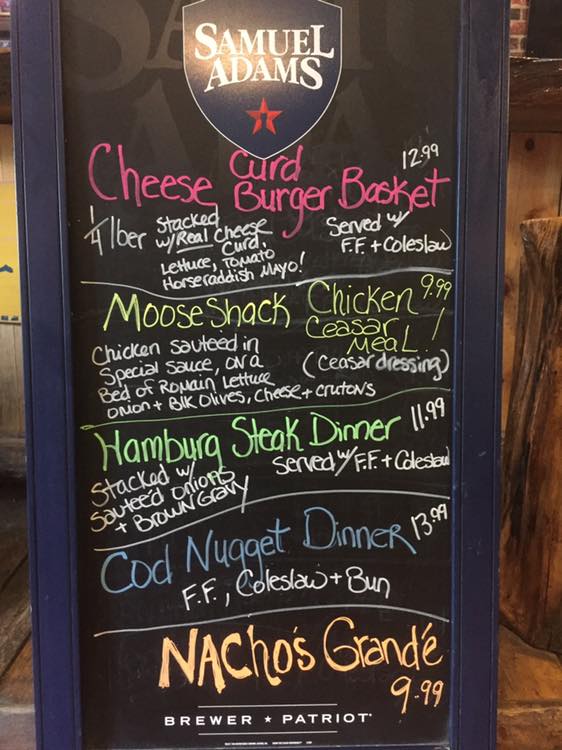 SAMUEL
ADAMS
12.99
Cheese Curd Burger Basket
1/4 lber Stacked w/Real Cheese Curd, Lettuce, Tomato Horseraddish Mayo!
Served w/ F.F. + Coleslaw
Moose Shack Chicken 9.99
Ceasar Meal!
(Ceasar dressing)
Chicken sauteed in
Special sauce, on a
Bed of Romain Lettuce
onion + Blk Olives, Cheese + crutons
Hamburg Steak Dinner 11.99
Stacked w/
Sauteéd onions
+ Brown Gravy
Served w/ F.F. + Coleslaw
Cod Nugget Dinner 13.99
F.F., Coleslaw + Bun
NAcho's Grandé
9.99
BREWER ★ PATRIOT